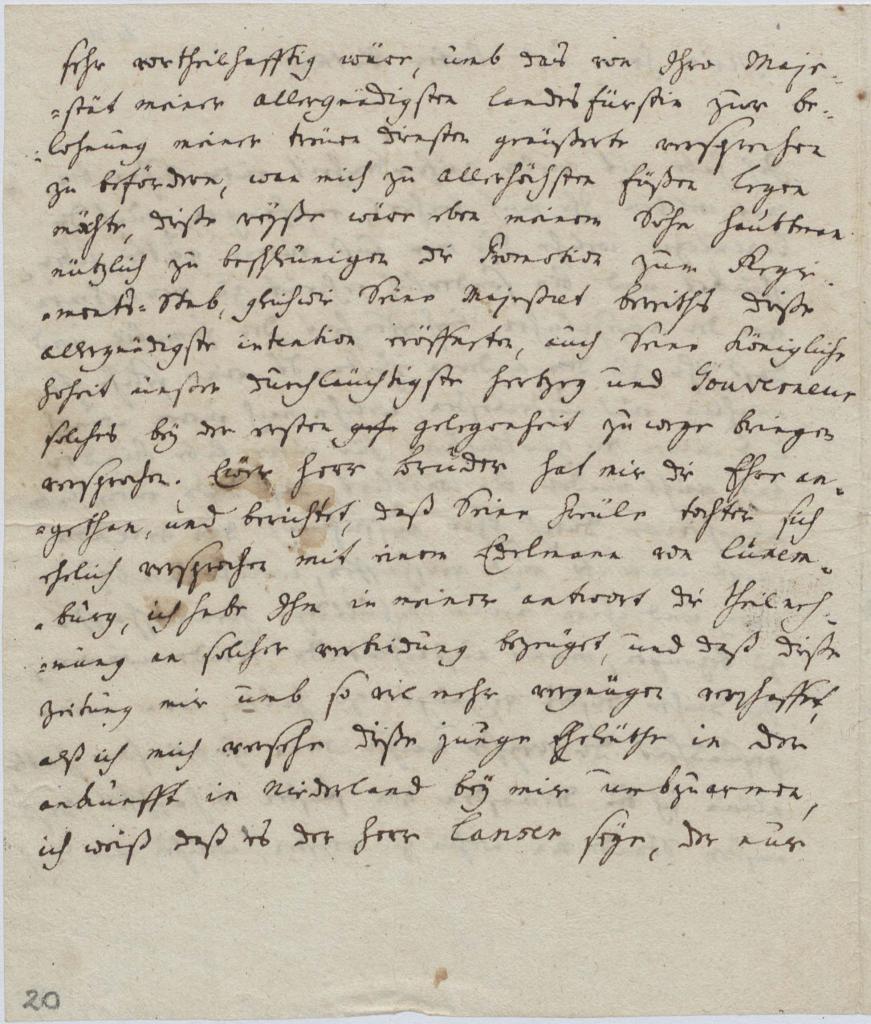 sehr vortheilhafftig wäre, umb das von Ihro Maje-
-stät meiner allergnädigsten landesfürstin zur be-
-lohnung meiner treüen diensten geäüßerte versprechen
zu befördern, wan mich zu allerhöchsten füßen legen
möchte, diße reyße wäre eben meinem Sohn haubtman
nützlich zu beschleünigen die Promotion zum Regi-
-ments-Stab, gleichwie Seine Majestaet bereiths diße
allergnädigste intention eröffneten, auch Seine Königliche
hoheit unßer durchläüchtigste hertzog und Gouverneur
solches bey der ersten gelegenheit zu wege bringen
versprochen. Eüer herr bruder hat mir die Ehre an-
-gethan, und berichtet, daß Seine freüle tochter sich
ehelich versprochen mit einem Edelmann von Lünem-
-burg, ich habe Ihm in meiner antwort die theilneh-
-mung an solcher verbindung bezeüget, und daß diße
zeitung mir umb so viel mehr vergnügen verschaffet,
alß ich mich versehe diße junge Eheleüthe in der
ankunfft in Niederland bey mir umbzuarmen,
ich weiß daß es der herr Lanser seye, der nur
20